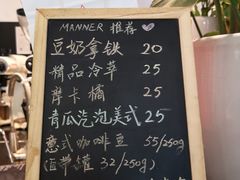 MANNER 推荐
豆奶拿铁 20
精品冷萃 25
摩卡橘 25
青瓜汽泡美式 25
意式咖啡豆 55/250g
(自带罐 32/250g)